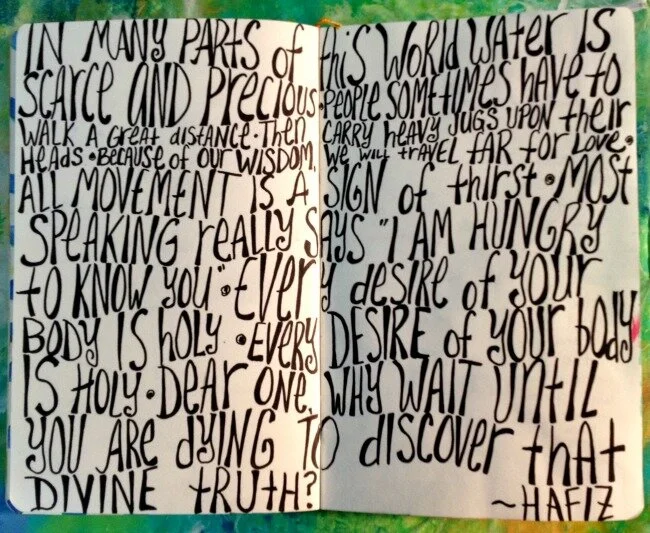 IN MANY PARTS of this WORld WAter IS
SCARCE AND PRecious • PEOPLE SOMEtIMES hAVE to
WALK A GReat diStANCE • TheN CARRY heAVY JUGS UPON theiR
HeAdS • BecAUSE of OUR WISDOM, We WILL tRAVEL fAR foR LOVe •
ALL MOVEMENT IS A SIGN of thirst • MOSt
SPEAKING reALLY SAYS "I AM HUNGRY
tO KNOW YOU" • EVERY desIRE of YOUR
BODY IS hOLY • EVERY DESIRE of YOUR bODY
IS HOLY • DeAR ONE, WHY WAIT UNtIL
YOU ARE dYING TO dISCOVER thAt
DIVINE tRUtH?
~ HAFIZ